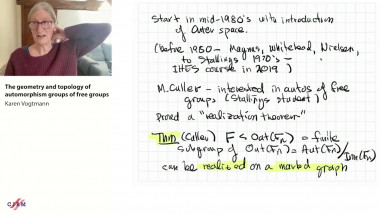 Start in mid-1980's with introduction
of Outer space.
(before 1980 - Magnus, Whitehead, Nielsen,
to Stallings 1970's -
IHES course in 2019)
M. Culler - interested in autos of free
groups (Stallings student)
proved a "realization theorem"
Thm (Culler) F ≤ Out(Fn) = finite
subgroup of Out(Fn) = Aut(Fn)/Inn(Fn)
can be realized on a marked graph
The geometry and topology of
automorphism groups of free groups
Karen Vogtmann